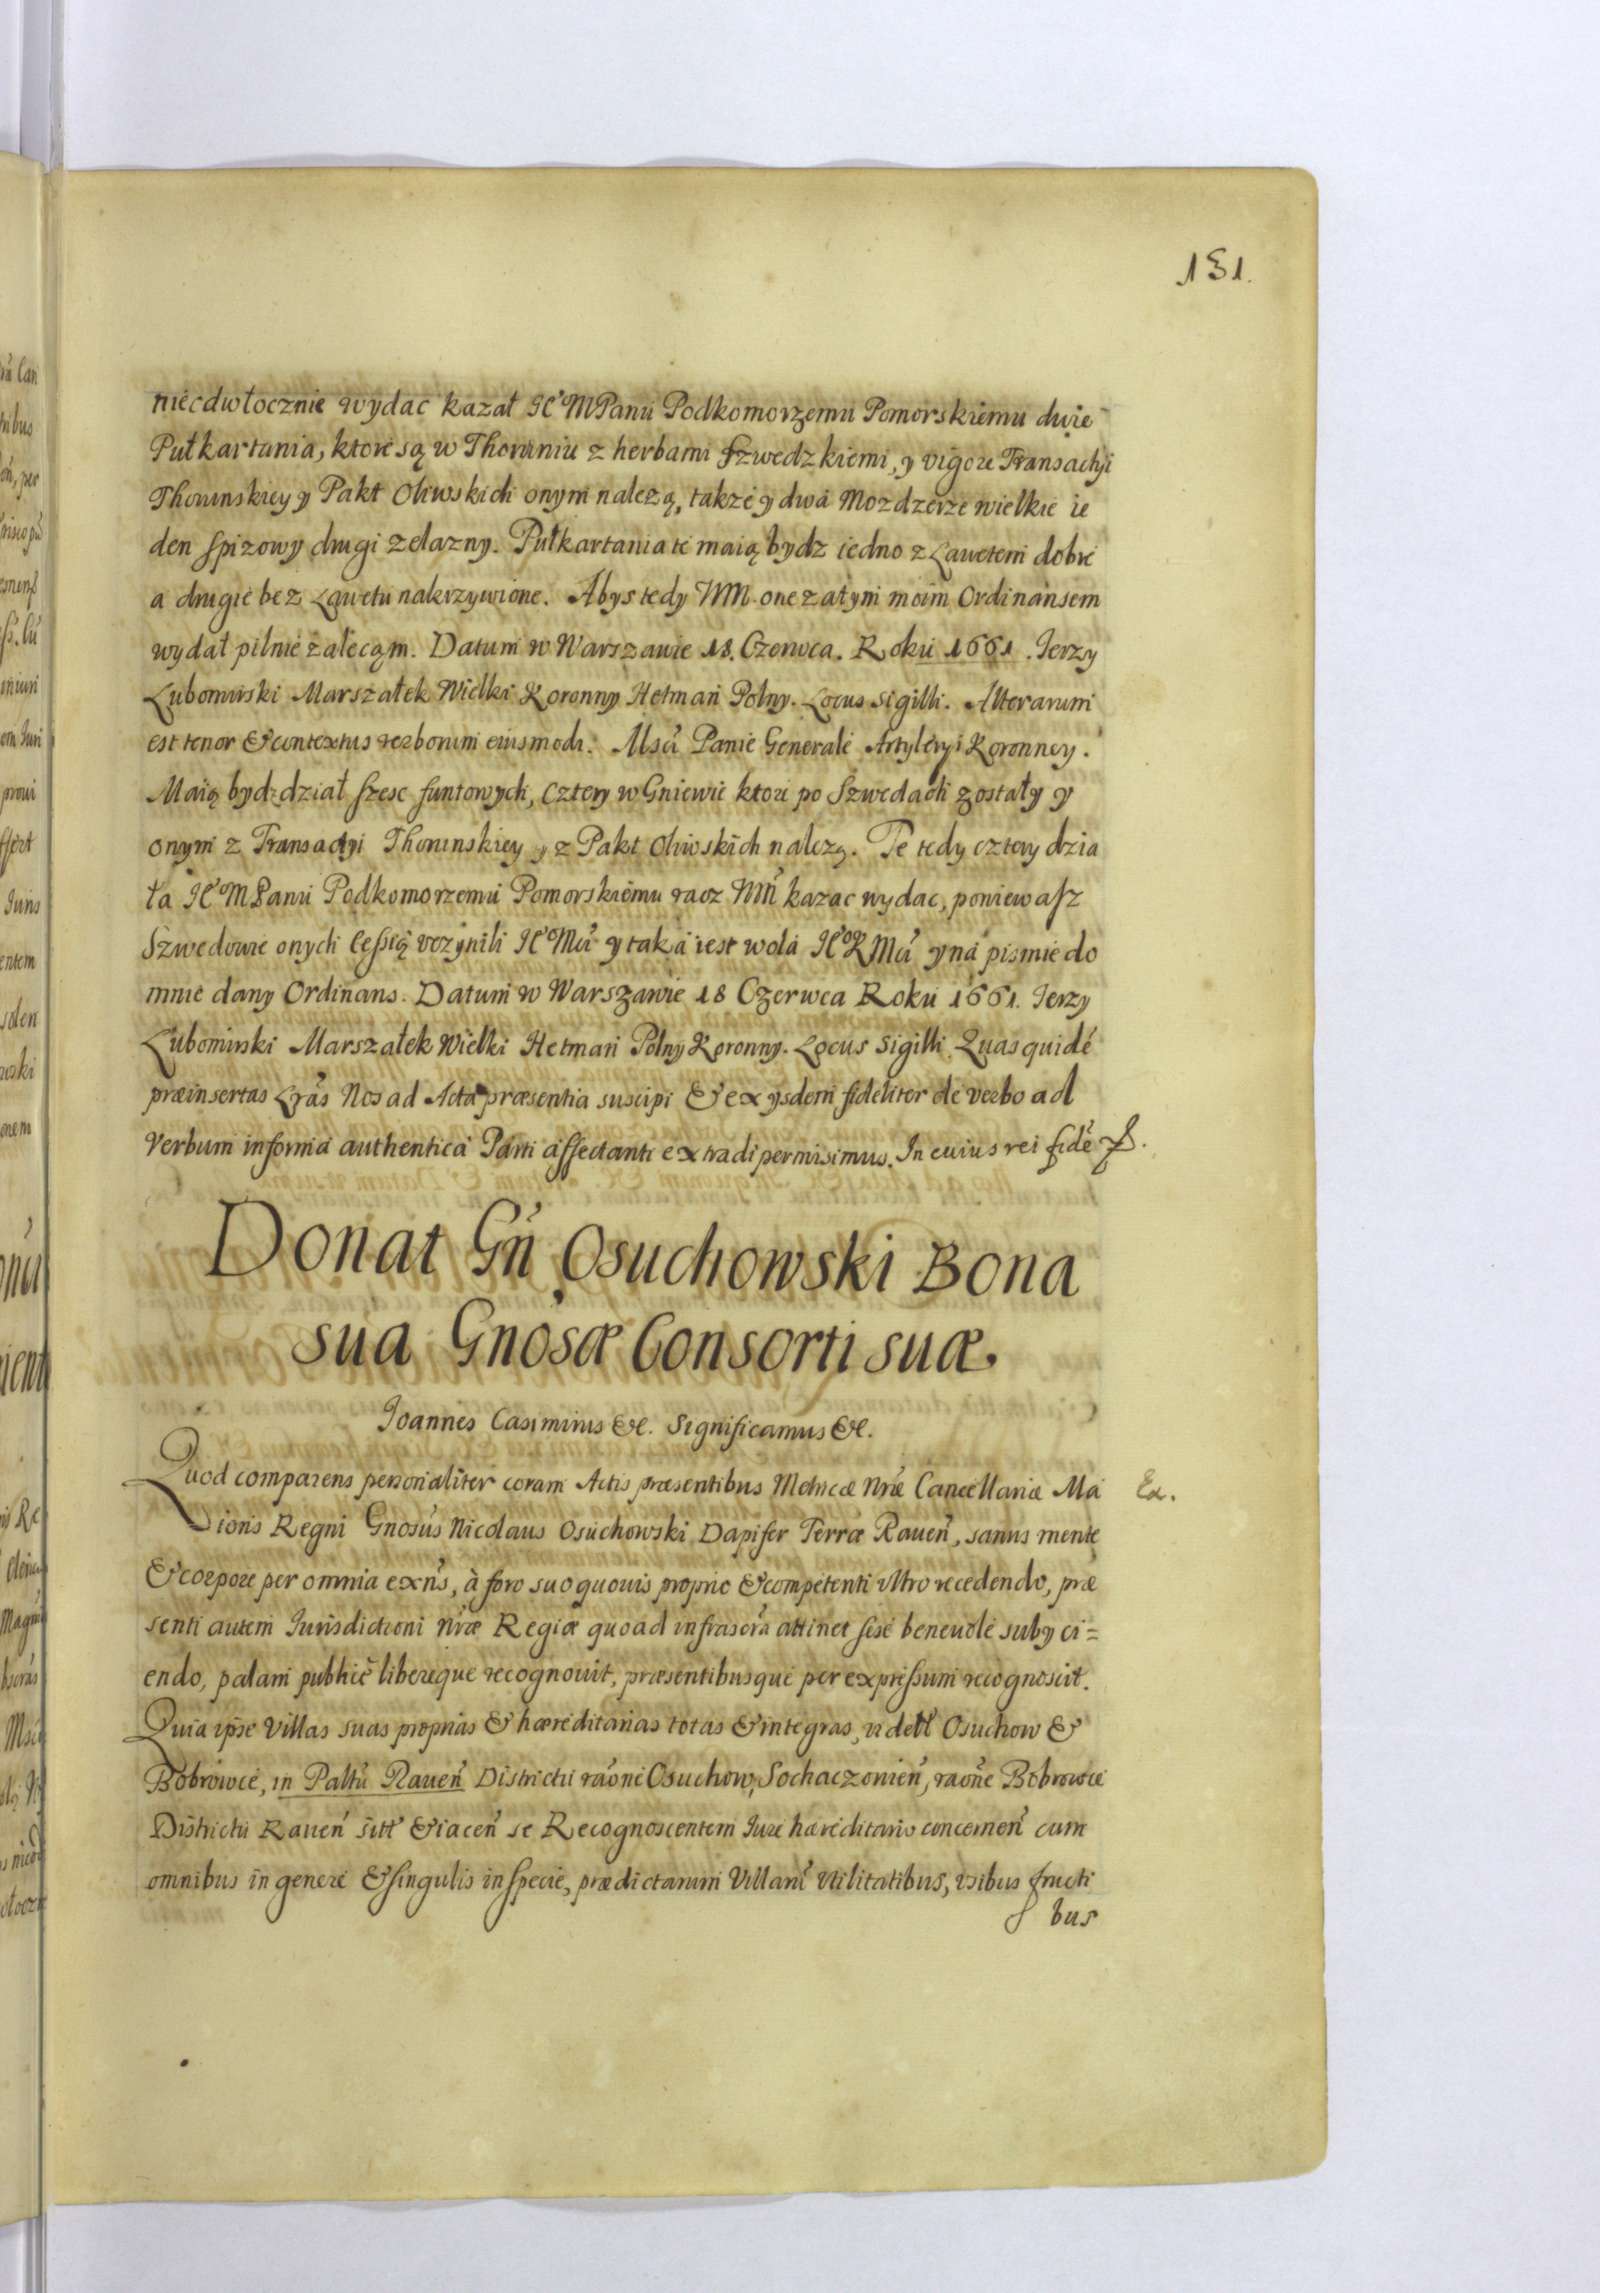 131.
nieodwłocznie wydac kazał JE°MPanu Podkomorzemu Pomorskiemu dwie
Pułkartania, ktore są w Thoruniu z herbami Szwedzkiemi, y vigore Transactyi
Thorunskiey y Pakt Oliwskich onym nalezą, takze y dwa Mozdzerze wielkie ie
den spizowy drugi zelazny. Pułkartania te maią bydz iedno z Lawetem dobre
a drugie bez Lawetu nakrzywione. Abys tedy WM. one za tym moim Ordinansem
wydał pilnie zalecąm. Datum w Warszawie 18. Czerwca. Roku 1661. Jerzy
Lubomirski Marszałek Wielki Koronny Hetman Polny. Locus Sigilli. Alterarum
est tenor & contextus verborum eiusmodi. Msci Panie Generale Artyleryi Koronney.
Maią bydz dział szesc funtowych, cztery w Gniewie ktore po Szwedach zostały y
onym z Transactyi Thorunskiey y z Pakt Oliwskich nalezą. Te tedy cztery dzia
ła JE°MPanu Podkomorzemu Pomorskiemu racz WM kazac wydac, poniewasz
Szwedowie onych cessią vczynili JE°Mci y taka iest wola JE°KMci y na pismie do
mnie dany Ordinans. Datum w Warszawie 18 Czerwca Roku 1661. Jerzy
Lubomirski Marszałek Wielki Hetman Polny Koronny. Locus Sigilli. Quas quidé
præinsertas Lrás Nos ad Acta præsentia suscipi & ex ysdem fideliter de verbo ad
Verbum in forma authentica Parti affectanti extradi permisimus. In cuius rei fidé
Donat Gń Osuchowski Bona
sua Gnosæ Consorti suæ.
Joannes Casimirus &c. Significamus &c.
Quod comparens personaliter coram Actis præsentibus Metricæ Nræ Cancellariæ Ma
Ex.
ioris Regni Gnosus Nicolaus Osuchowski Dapifer Terræ Raueń, sanus mente
& corpore per omnia exns, à foro suo quouis proprio & competenti vltro recedendo, præ
senti autem Jurisdictioni Nræ Regiæ quoad infrascra attinet sese beneuole suby ci=
endo, palam publicè libereque recognouit, præsentibusque per expressum recognoscit.
Quia ipse Villas suas proprias & hæreditarias totas & integras, videtł Osuchow &
Bobrowce, in Paltu Raueń Districtu raone Osuchow, Sochaczouień, raone Bobrowce
Districtu Raueń sitt & iaceń se Recognoscentem Jure hæreditario concerneń cum
omnibus in genere & singulis in specie, prædictarum Villarum Vtilitatibus, vsibus fructi
bus